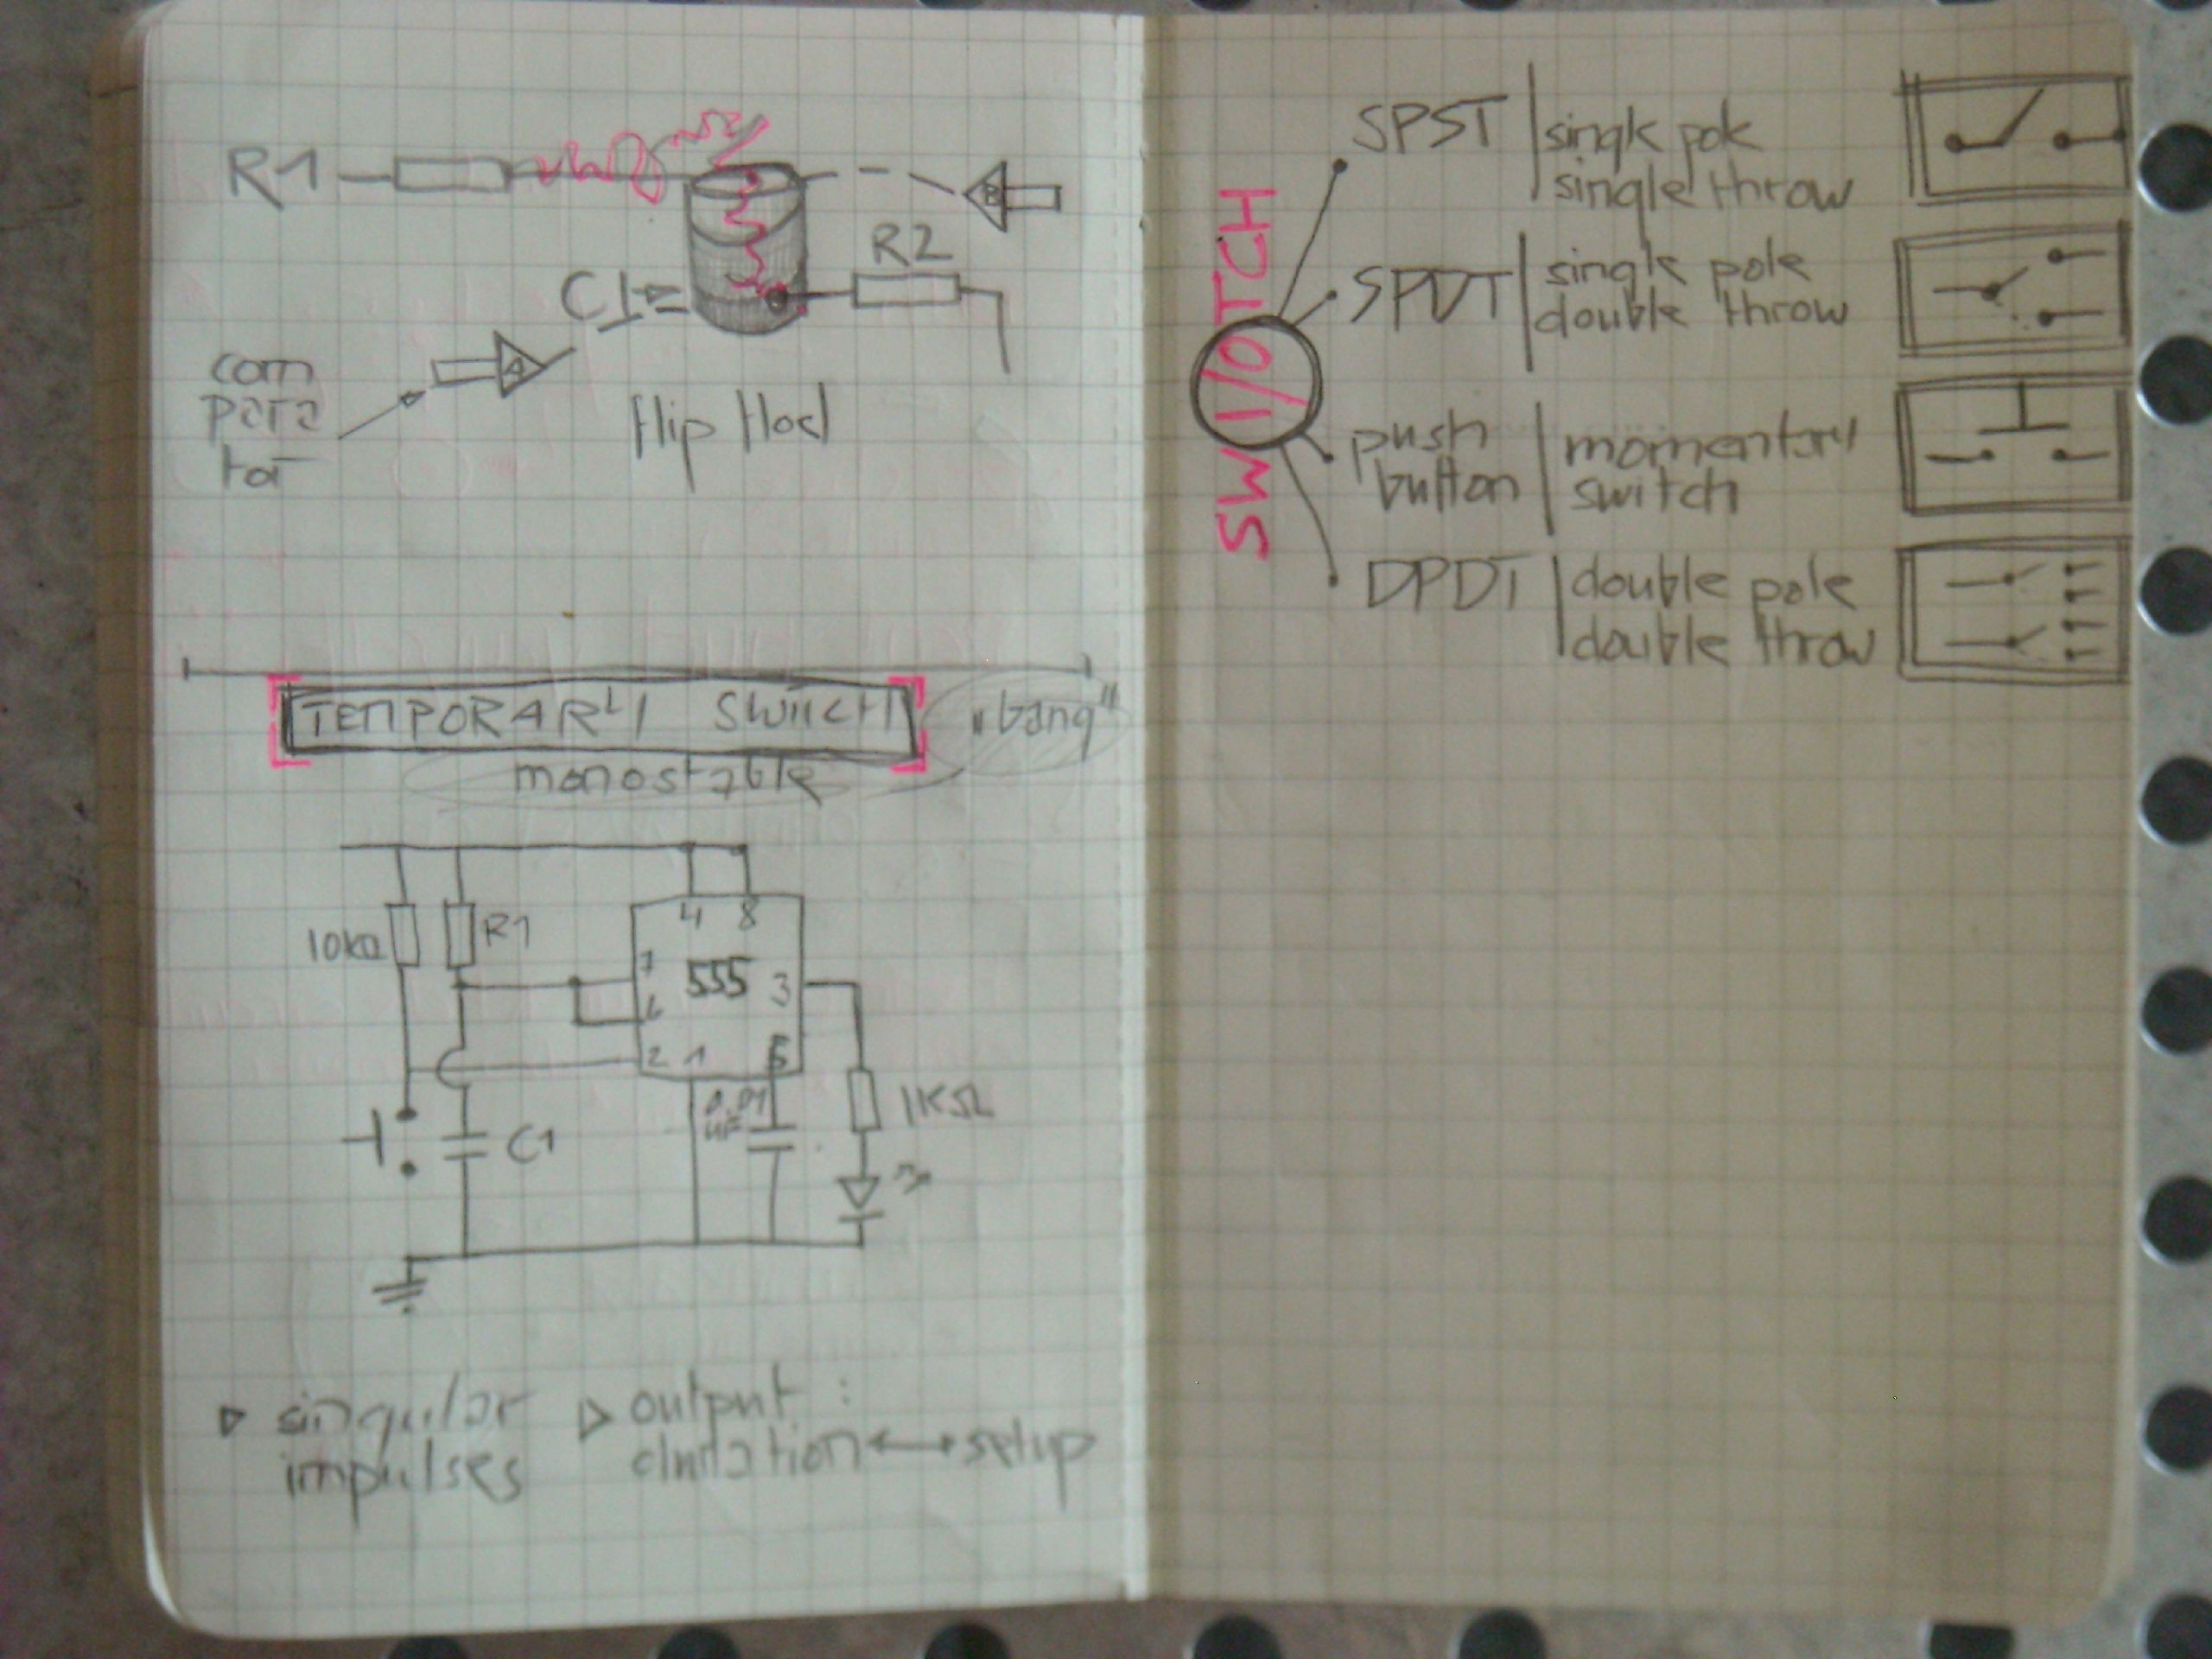 R1
R2
C1
com
para
tor
TEMPORARLY SWITCH
"bang"
monostable
10kΩ
R1
4 8
7
555
3
6
2 1 5
0.01
uF
1KΩ
C1
singular
impulses
output :
duration ↔ setup
SWI/OTCH
SPST | single pole
single throw
SPDT | single pole
double throw
push
button | momentary
switch
DPDT | double pole
double throw